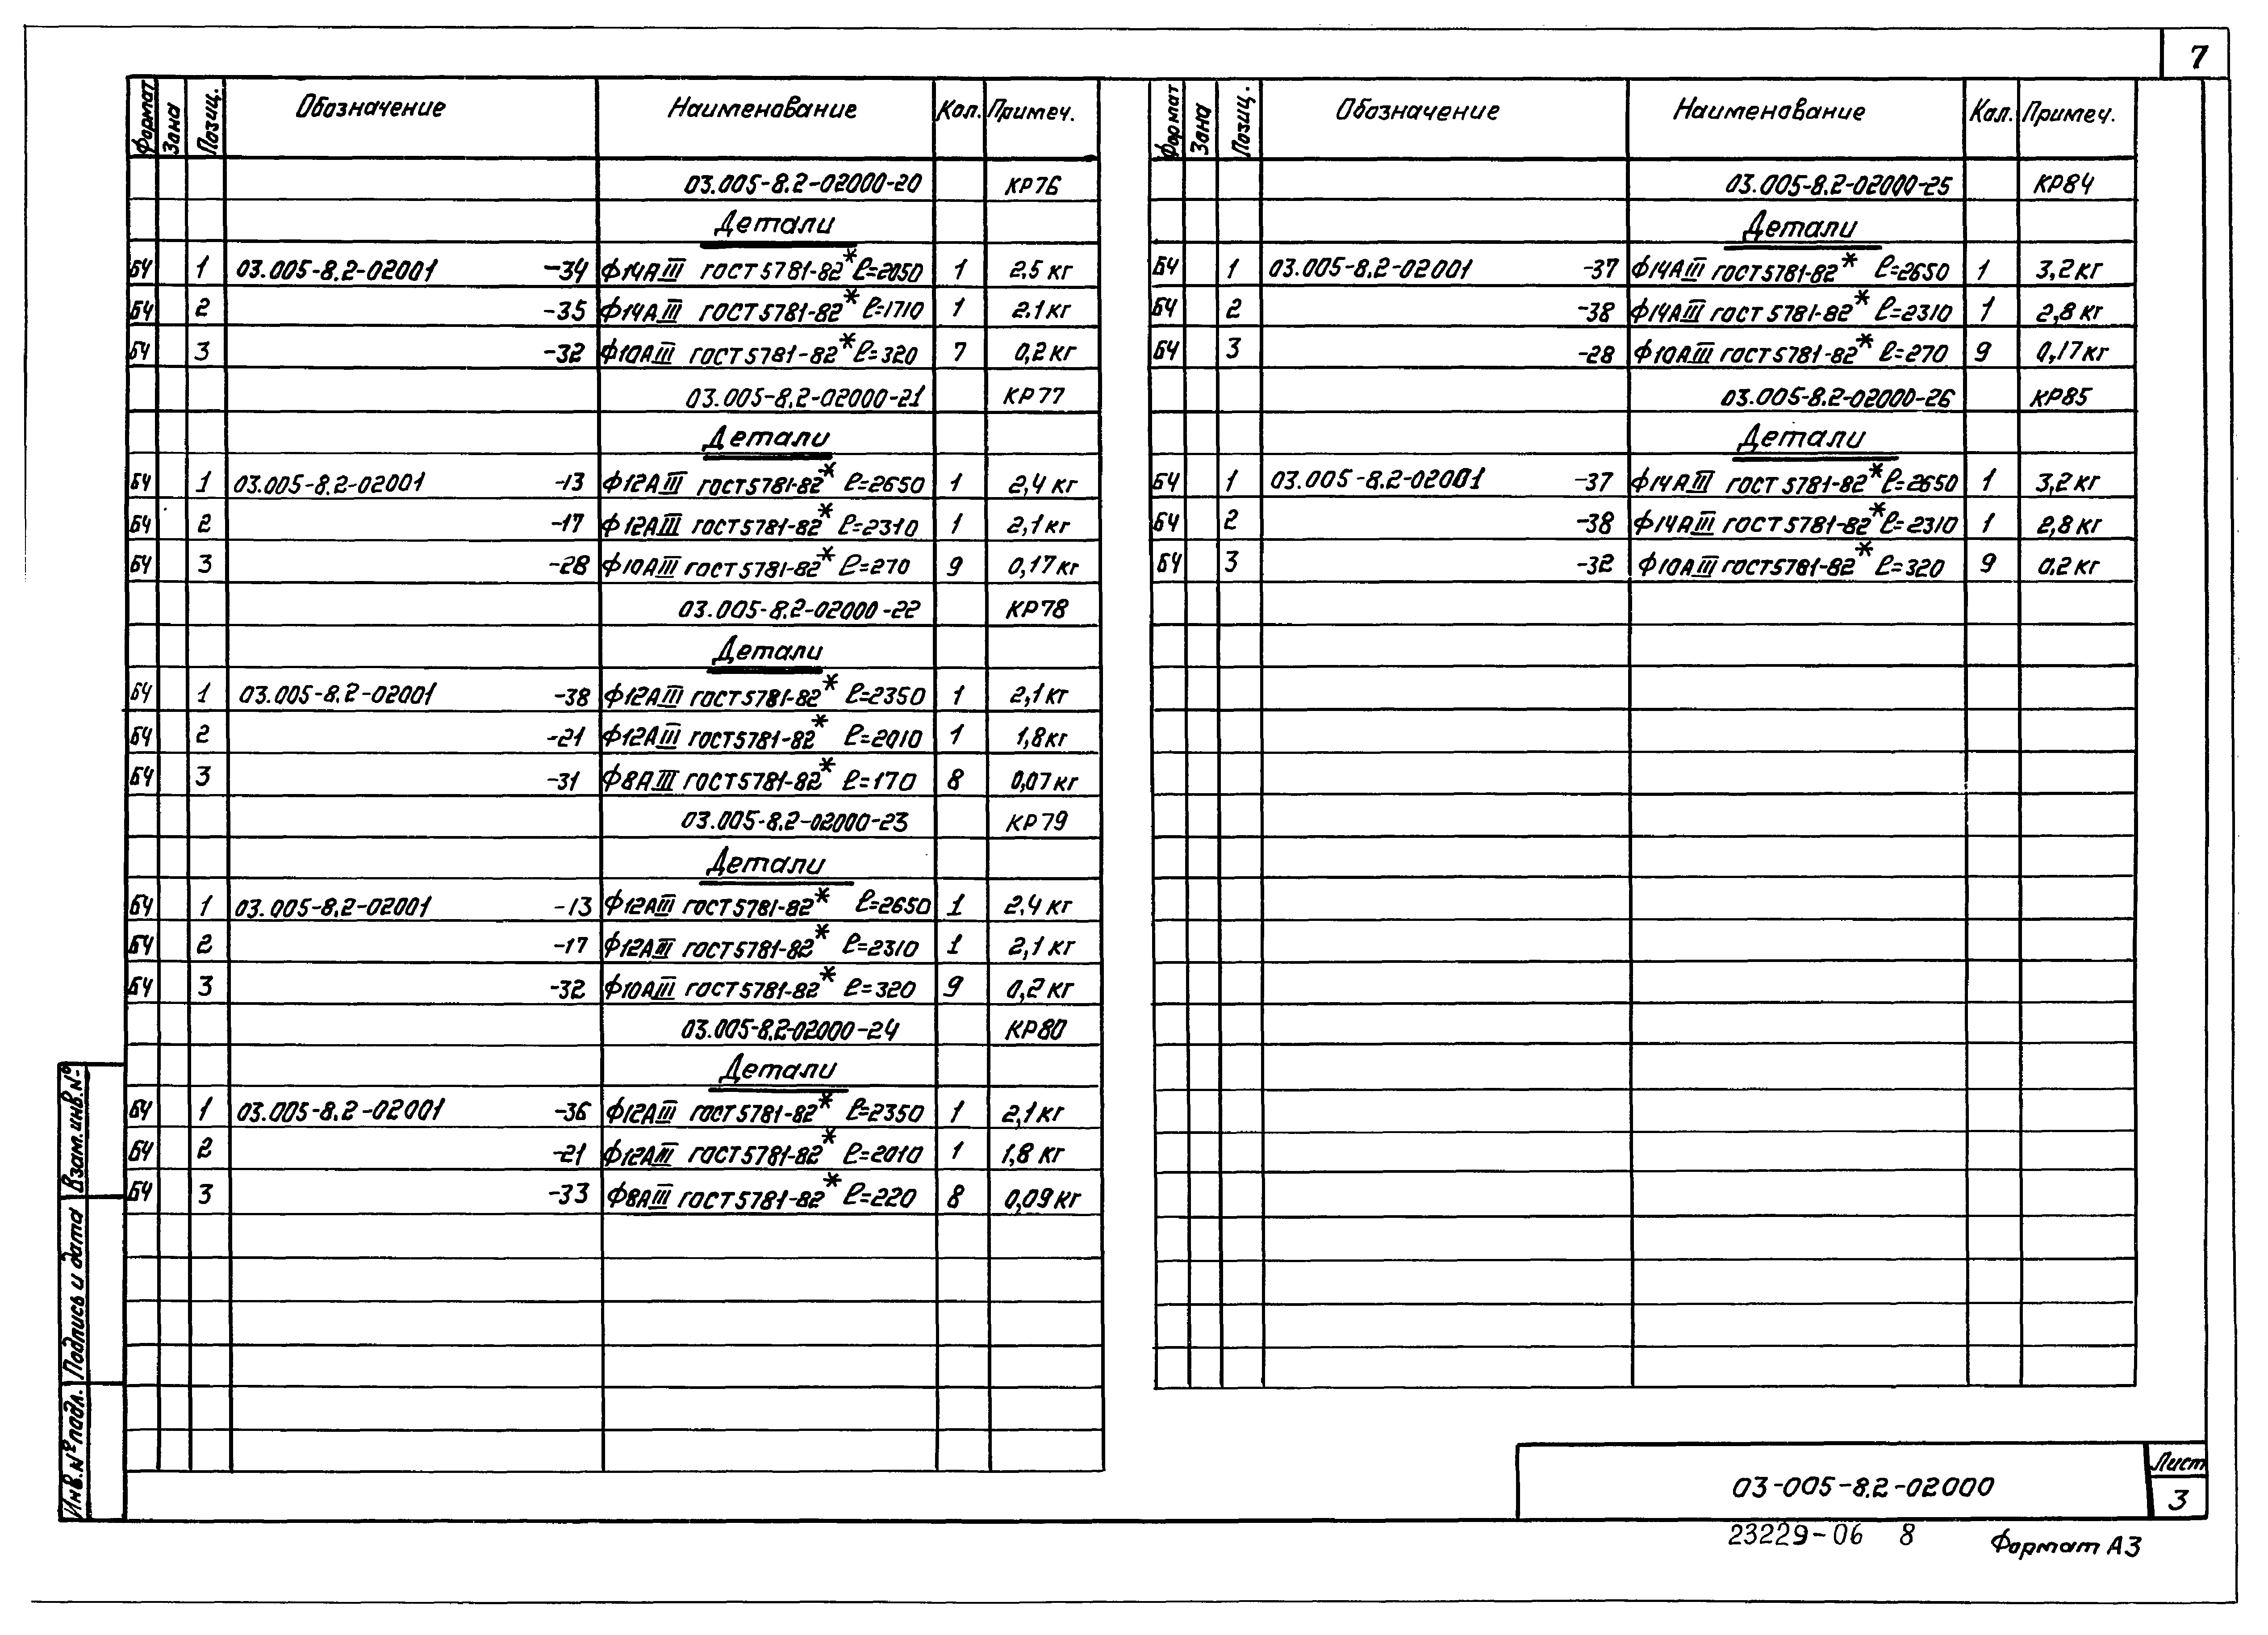 7
Формат Зона Позиц. Обозначение Наименование Кол. Примеч.
03.005-8.2-02000-20 КР76
Детали
БЧ 1 03.005-8.2-02001 -34 Ф14АIII ГОСТ 5781-82* ℓ=2050 1 2,5 кг
БЧ 2 -35 Ф14АIII ГОСТ 5781-82* ℓ=1710 1 2.1 кг
БЧ 3 -32 Ф10АIII ГОСТ 5781-82* ℓ=320 7 0,2 кг
03.005-8.2-02000-21 КР77
Детали
БЧ 1 03.005-8.2-02001 -13 Ф12АIII ГОСТ 5781-82* ℓ=2650 1 2,4 кг
БЧ 2 -17 Ф12АIII ГОСТ 5781-82* ℓ=2310 1 2,1 кг
БЧ 3 -28 Ф10АIII ГОСТ 5781-82* ℓ=270 9 0,17 кг
03.005-8.2-02000-22 КР78
Детали
БЧ 1 03.005-8.2-02001 -38 Ф12АIII ГОСТ 5781-82* ℓ=2350 1 2,1 кг
БЧ 2 -21 Ф12АIII ГОСТ 5781-82* ℓ=2010 1 1,8 кг
БЧ 3 -31 Ф8АIII ГОСТ 5781-82* ℓ=170 8 0,07 кг
03.005-8.2-02000-23 КР79
Детали
БЧ 1 03.005-8.2-02001 -13 Ф12АIII ГОСТ 5781-82* ℓ=2650 1 2,4 кг
БЧ 2 -17 Ф12АIII ГОСТ 5781-82* ℓ=2310 1 2,1 кг
БЧ 3 -32 Ф10АIII ГОСТ 5781-82* ℓ=320 9 0,2 кг
03.005-8.2-02000-24 КР80
Детали
БЧ 1 03.005-8.2-02001 -36 Ф12АIII ГОСТ 5781-82* ℓ=2350 1 2,1 кг
БЧ 2 -21 Ф12АIII ГОСТ 5781-82* ℓ=2010 1 1,8 кг
БЧ 3 -33 Ф8АIII ГОСТ 5781-82* ℓ=220 8 0,09 кг
Формат Зона Позиц. Обозначение Наименование Кол. Примеч.
03.005-8.2-02000-25 КР84
Детали
БЧ 1 03.005-8.2-02001 -37 Ф14АIII ГОСТ 5781-82* ℓ=2650 1 3,2 кг
БЧ 2 -38 Ф14АIII ГОСТ 5781-82* ℓ=2310 1 2,8 кг
БЧ 3 -28 Ф10АIII ГОСТ 5781-82* ℓ=270 9 0,17 кг
03.005-8.2-02000-26 КР85
Детали
БЧ 1 03.005-8.2-02001 -37 Ф14АIII ГОСТ 5781-82* ℓ=2650 1 3,2 кг
БЧ 2 -38 Ф14АIII ГОСТ 5781-82* ℓ=2310 1 2,8 кг
БЧ 3 -32 Ф10АIII ГОСТ 5781-82* ℓ=320 9 0.2 кг
Взам.инв.№
Подпись и дата
Инв.№подл.
03-005-8.2-02000
Лист
3
23229-06 8
Формат А3